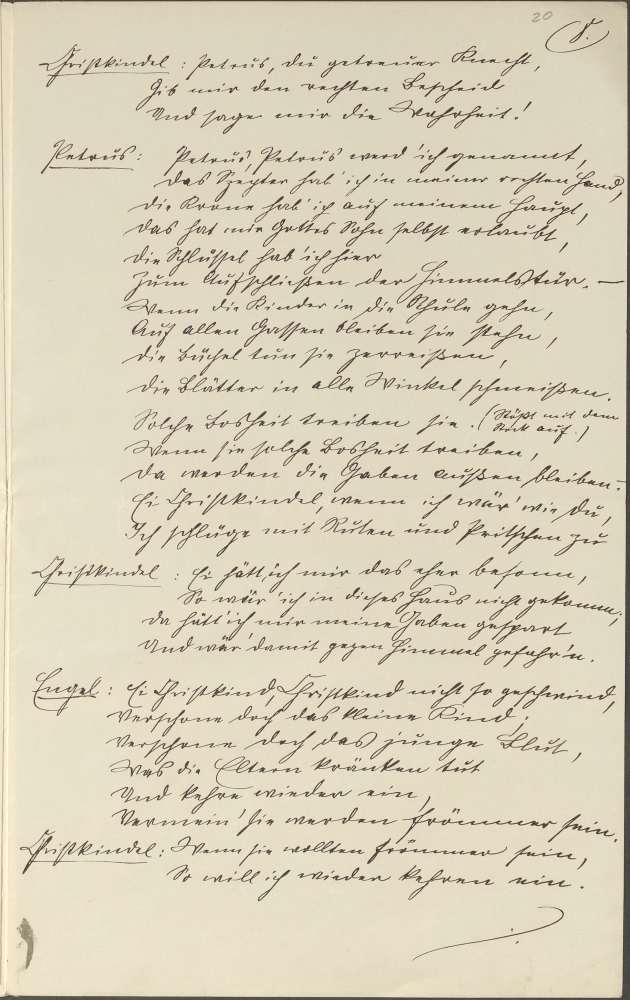 20
8.
Christkindel : Petrus, du getreuer Knecht,
Gib mir den rechten Bescheid
Und sage mir die Wahrheit!
Petrus: Petrus, Petrus werd' ich genannt,
Das Szepter hab' ich in meiner rechten Hand,
Die Krone hab' ich auf meinem Haupt,
Das hat mir Gottes Sohn selbst erlaubt,
Die Schlüssel hab' ich hier
Zum Aufschließen der Himmelstür. —
Wenn die Kinder in die Schule gehn,
Auf allen Gassen bleiben sie stehn,
Die Büchel tun sie zerreißen,
Die Blätter in alle Winkel schmeißen.
Solche Bosheit treiben sie. (Stößt mit dem
Stock auf.)
Wenn sie solche Bosheit treiben,
Da werden die Gaben außen bleiben.
Ei Christkindel, wenn ich wär' wie du,
Ich schlüge mit Ruten und Pritschen zu
Christkindel : Ei hätt' ich mir das eher besonn,
So wär' ich in dieses Haus nicht gekomm;
Da hätt' ich mir meine Gaben gespart
Und wär' damit gegen Himmel gefahr'n.
Engel : Ei Christkind, Christkind nicht so geschwind,
Verschone doch das kleine Kind;
Verschone doch das junge Blut,
Was die Eltern kränken tut
Und kehre wieder ein,
Vermein' sie werden frömmer sein.
Christkindel: Wenn sie wollten frömmer sein,
So will ich wieder kehren ein.